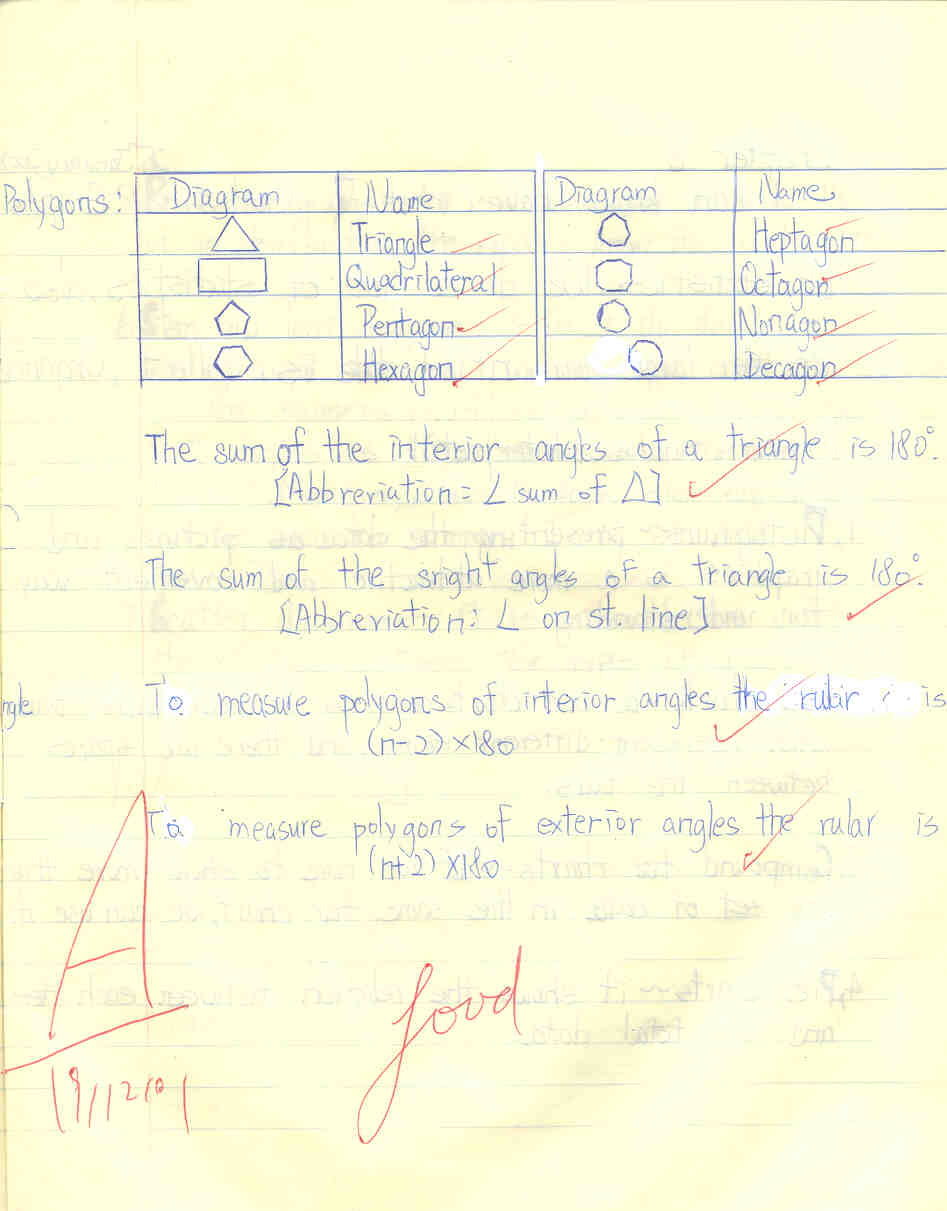 Polygons:
Diagram Name Diagram Name
Triangle Heptagon
Quadrilateral Octagon
Pentagon Nonagon
Hexagon Decagon
The sum of the interior angles of a triangle is 180°.
[Abbreviation = ∠ sum of Δ]
The sum of the sright angles of a triangle is 180°.
[Abbreviation: ∠ on st. line]
ngle To measure polygons of interior angles the rular is
(n-2)×180
To measure polygons of exterior angles the rular is
(n+2)×180
A
Good